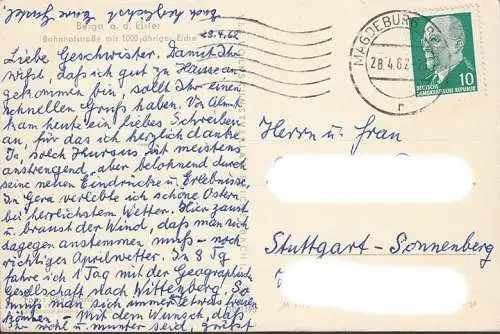 Euch herzlichst Eure Friedel
Berga a. d. Elster
Bahnhofstraße mit 1000jähriger Eiche
28.4.62
Liebe Geschwister. Damit Ihr
wißt, daß ich gut zu Hause an-
gekommen bin, sollt Ihr einen
schnellen Gruß haben. Von
kam heute ein liebes Schreiben
an, für das ich herzlich danke.
Ja, solch Kursus ist meistens
anstrengend, aber belohnend durch
seine neuen Eindrücke u. Erlebnisse.
In Gera verlebte ich schöne Ostern
bei herrlichstem Wetter. Hier zaust
u. braust der Wind, daß man sich
dagegen anstemmen muß – noch
richtiges Aprilwetter. In 8 Tg
fahre ich 1 Tag mit der Geographischen
Gesellschaft nach Wittenberg. So
muß man sich immer etwas freuen
können. – Mit dem Wunsch, daß
Ihr wohl u. munter seid, grüßt
MAGDEBURG
28.4.62
r
10
DEUTSCHE
DEMOKRATISCHE REPUBLIK
Herrn u. Frau
Stuttgart-Sonnenberg